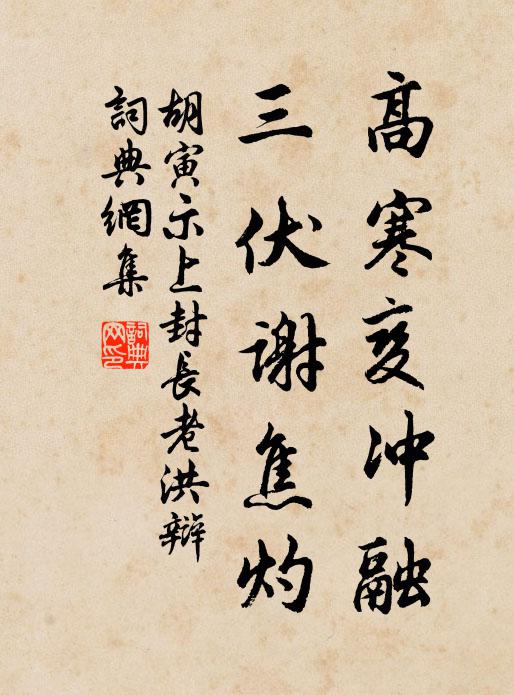 高寒变冲融
三伏谢焦灼
胡寅示上封長老洪辯
詞典網集
詞典網印